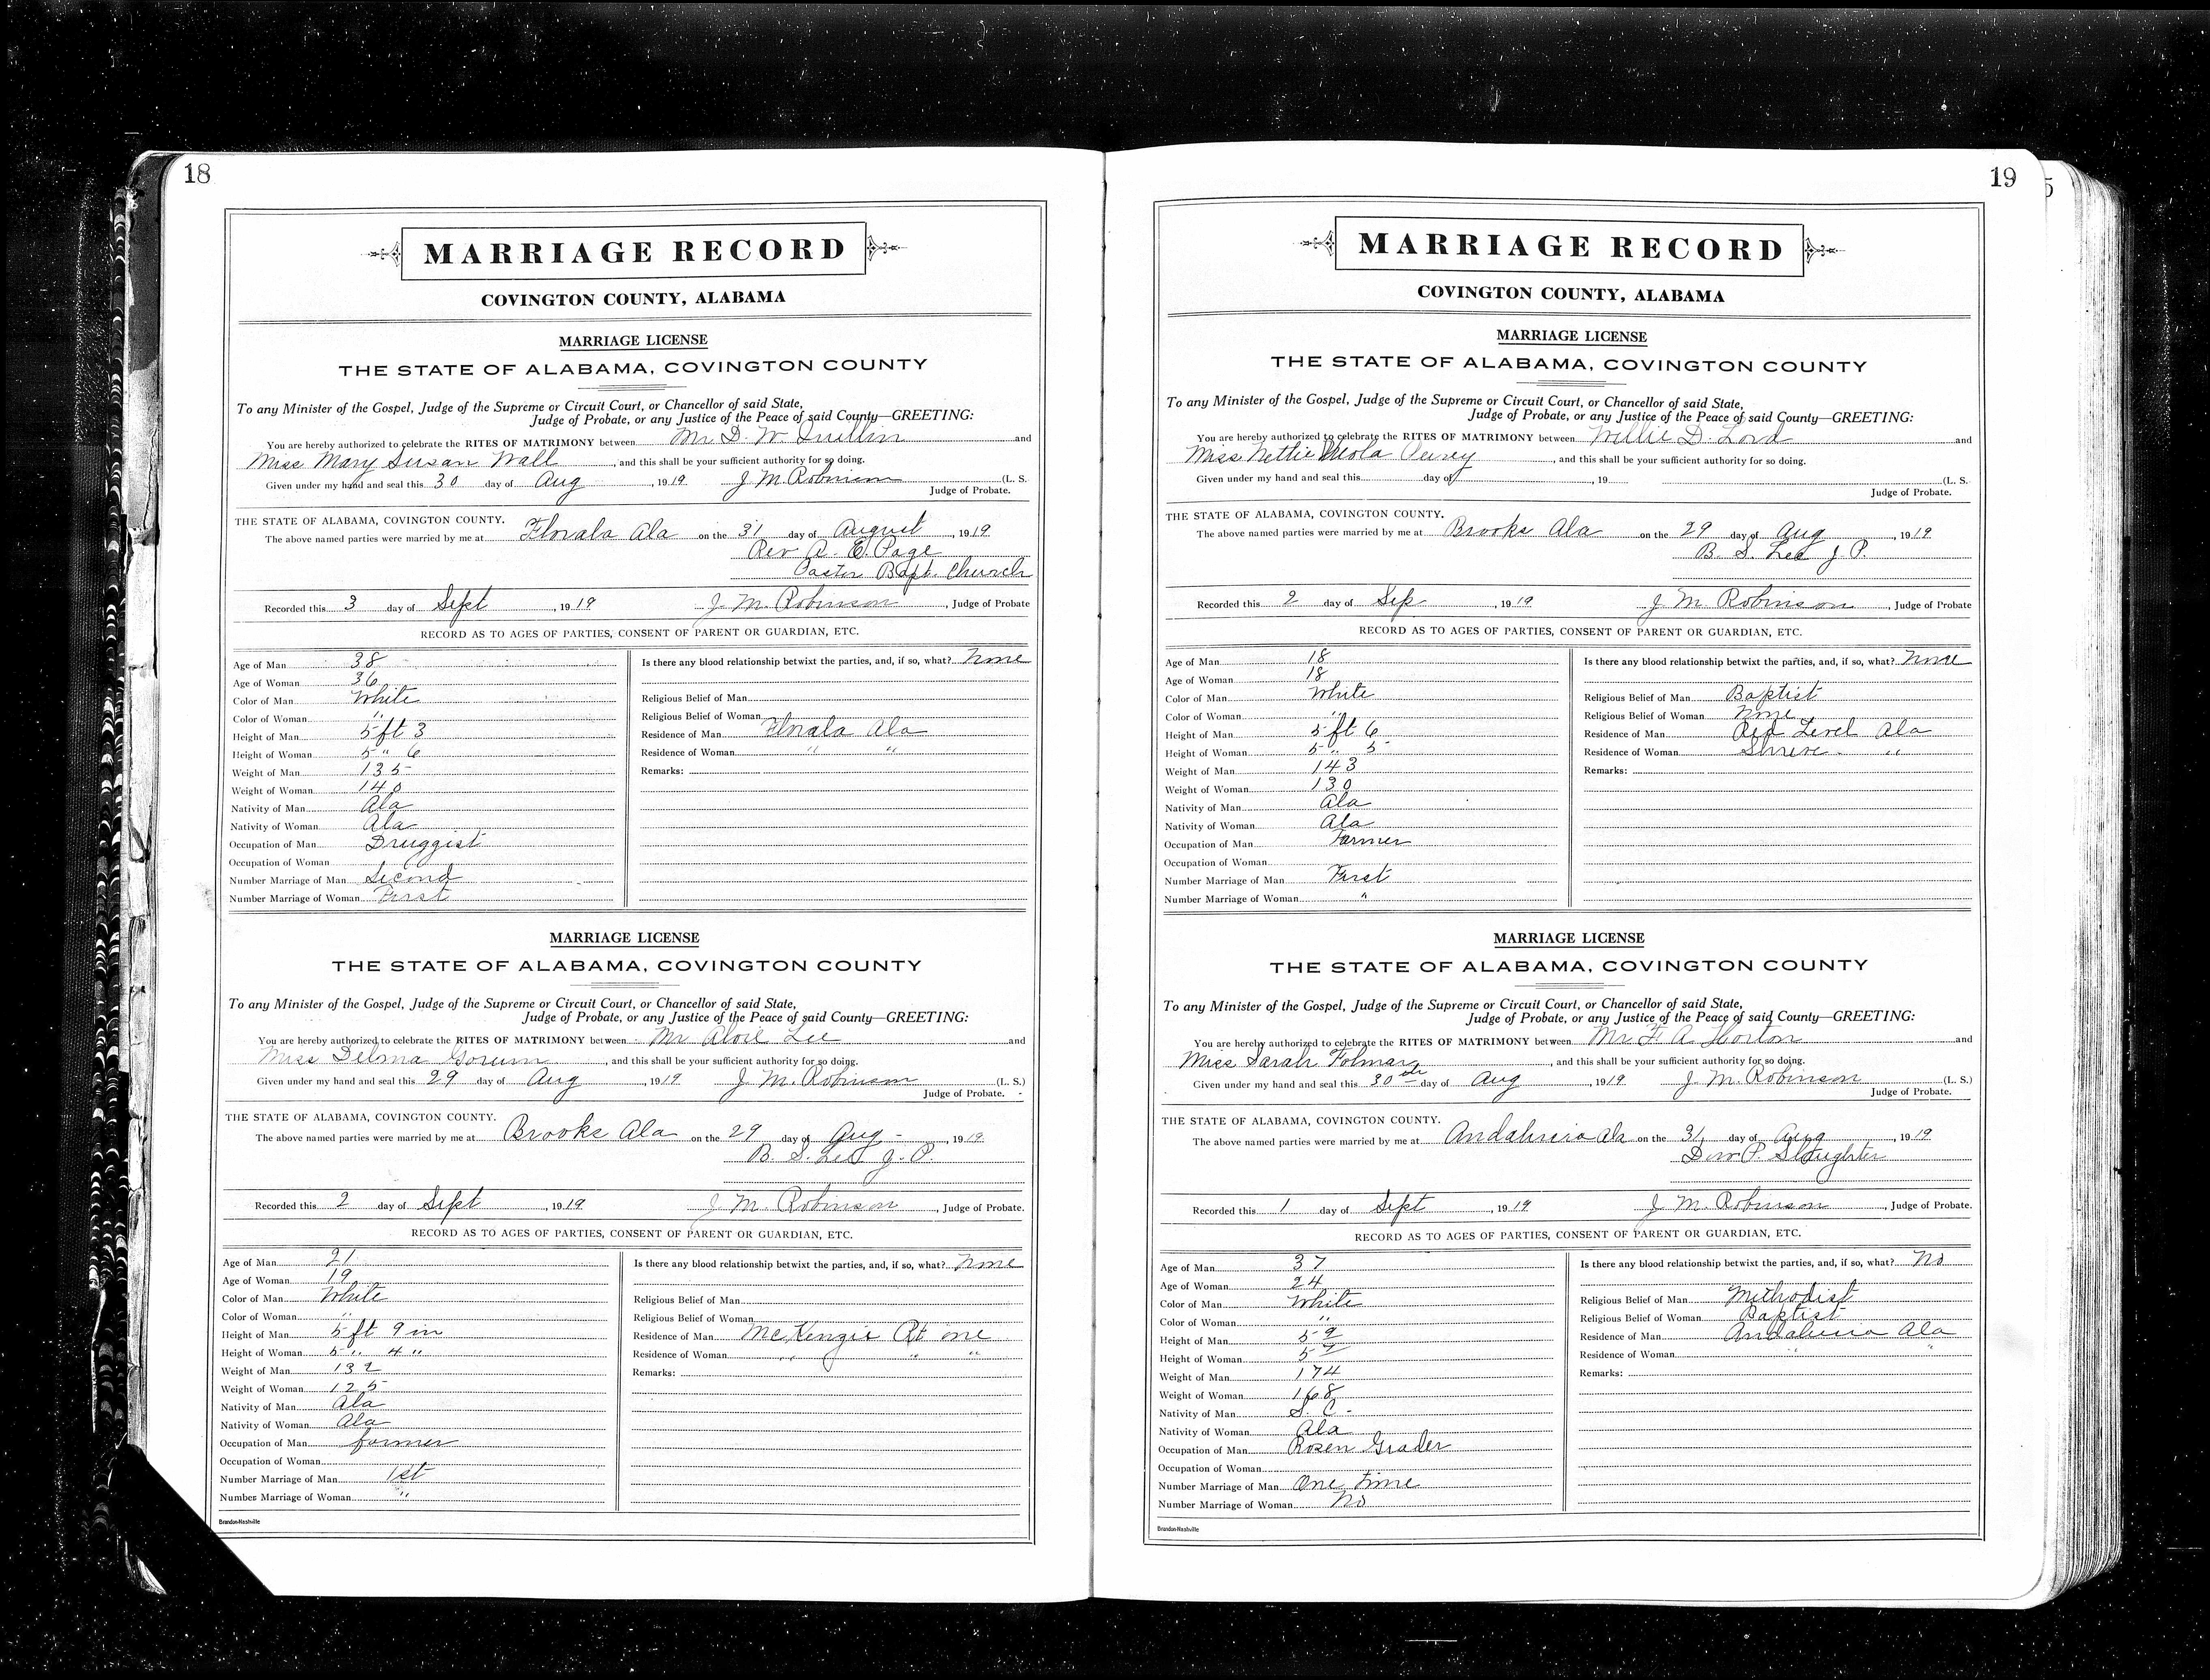 18
MARRIAGE RECORD
COVINGTON COUNTY, ALABAMA
MARRIAGE LICENSE
THE STATE OF ALABAMA, COVINGTON COUNTY
To any Minister of the Gospel, Judge of the Supreme or Circuit Court, or Chancellor of said State,
Judge of Probate, or any Justice of the Peace of said County—GREETING:
You are hereby authorized to celebrate the RITES OF MATRIMONY between Mr D. W. and
Miss Mary Susan Wall, and this shall be your sufficient authority for so doing.
Given under my hand and seal this 30 day of Aug, 1919 J. M. Robinson (L. S.
Judge of Probate.
THE STATE OF ALABAMA, COVINGTON COUNTY.
The above named parties were married by me at Florala Ala on the 31 day of August, 1919
Rev A. E. Page
Pastor Bapt. Church
Recorded this 3 day of Sept, 1919 J. M. Robinson, Judge of Probate
RECORD AS TO AGES OF PARTIES, CONSENT OF PARENT OR GUARDIAN, ETC.
Age of Man 38
Age of Woman 36
Color of Man White
Color of Woman "
Height of Man 5 ft 3
Height of Woman 5 " 6
Weight of Man 135
Weight of Woman 140
Nativity of Man Ala
Nativity of Woman Ala
Occupation of Man Druggist
Occupation of Woman
Number Marriage of Man Second
Number Marriage of Woman First
Is there any blood relationship betwixt the parties, and, if so, what? None
Religious Belief of Man
Religious Belief of Woman
Residence of Man Florala Ala
Residence of Woman " "
Remarks:
MARRIAGE LICENSE
THE STATE OF ALABAMA, COVINGTON COUNTY
To any Minister of the Gospel, Judge of the Supreme or Circuit Court, or Chancellor of said State,
Judge of Probate, or any Justice of the Peace of said County—GREETING:
You are hereby authorized to celebrate the RITES OF MATRIMONY between Mr Lee and
Miss Delma Gorum, and this shall be your sufficient authority for so doing.
Given under my hand and seal this 29 day of Aug, 1919 J. M. Robinson (L. S.)
Judge of Probate.
THE STATE OF ALABAMA, COVINGTON COUNTY.
The above named parties were married by me at Brooks Ala on the 29 day of Aug -, 1919
B. S. Lee J. P.
Recorded this 2 day of Sept, 1919 J. M. Robinson, Judge of Probate.
RECORD AS TO AGES OF PARTIES, CONSENT OF PARENT OR GUARDIAN, ETC.
Age of Man 21
Age of Woman 19
Color of Man White
Color of Woman "
Height of Man 5 ft 9 in
Height of Woman 5 " 4 "
Weight of Man 132
Weight of Woman 125
Nativity of Man Ala
Nativity of Woman Ala
Occupation of Man farmer
Occupation of Woman
Number Marriage of Man 1st
Number Marriage of Woman "
Is there any blood relationship betwixt the parties, and, if so, what? None
Religious Belief of Man
Religious Belief of Woman
Residence of Man McKenzie Rt one
Residence of Woman " " "
Remarks:
Brandon-Nashville
19
MARRIAGE RECORD
COVINGTON COUNTY, ALABAMA
MARRIAGE LICENSE
THE STATE OF ALABAMA, COVINGTON COUNTY
To any Minister of the Gospel, Judge of the Supreme or Circuit Court, or Chancellor of said State,
Judge of Probate, or any Justice of the Peace of said County—GREETING:
You are hereby authorized to celebrate the RITES OF MATRIMONY between Willie D. Lord and
Miss Nettie, and this shall be your sufficient authority for so doing.
Given under my hand and seal this day of, 19 (L. S.
Judge of Probate.
THE STATE OF ALABAMA, COVINGTON COUNTY.
The above named parties were married by me at Brooks Ala on the 29 day of Aug, 1919
B. S. Lee J. P.
Recorded this 2 day of Sep, 1919 J. M. Robinson, Judge of Probate
RECORD AS TO AGES OF PARTIES, CONSENT OF PARENT OR GUARDIAN, ETC.
Age of Man 18
Age of Woman 18
Color of Man White
Color of Woman "
Height of Man 5 ft 6
Height of Woman 5 " 5
Weight of Man 143
Weight of Woman 130
Nativity of Man Ala
Nativity of Woman Ala
Occupation of Man Farmer
Occupation of Woman
Number Marriage of Man First
Number Marriage of Woman "
Is there any blood relationship betwixt the parties, and, if so, what? None
Religious Belief of Man Baptist
Religious Belief of Woman None
Residence of Man Red Level Ala
Residence of Woman Shreve "
Remarks:
MARRIAGE LICENSE
THE STATE OF ALABAMA, COVINGTON COUNTY
To any Minister of the Gospel, Judge of the Supreme or Circuit Court, or Chancellor of said State,
Judge of Probate, or any Justice of the Peace of said County—GREETING:
You are hereby authorized to celebrate the RITES OF MATRIMONY between Mr F. A. Horton and
Miss Sarah Folmar, and this shall be your sufficient authority for so doing.
Given under my hand and seal this 30th day of Aug, 1919 J. M. Robinson (L. S.)
Judge of Probate.
THE STATE OF ALABAMA, COVINGTON COUNTY.
The above named parties were married by me at Andalusia Ala on the 31 day of Aug, 1919
P. Slaughter
Recorded this 1 day of Sept, 1919 J. M. Robinson, Judge of Probate.
RECORD AS TO AGES OF PARTIES, CONSENT OF PARENT OR GUARDIAN, ETC.
Age of Man 37
Age of Woman 24
Color of Man White
Color of Woman "
Height of Man 5 9
Height of Woman 5 7
Weight of Man 174
Weight of Woman 168
Nativity of Man S. C -
Nativity of Woman Ala
Occupation of Man Rosen Grader
Occupation of Woman
Number Marriage of Man One time
Number Marriage of Woman No
Is there any blood relationship betwixt the parties, and, if so, what? No
Religious Belief of Man Methodist
Religious Belief of Woman Baptist
Residence of Man Andalusia Ala
Residence of Woman " "
Remarks:
Brandon-Nashville